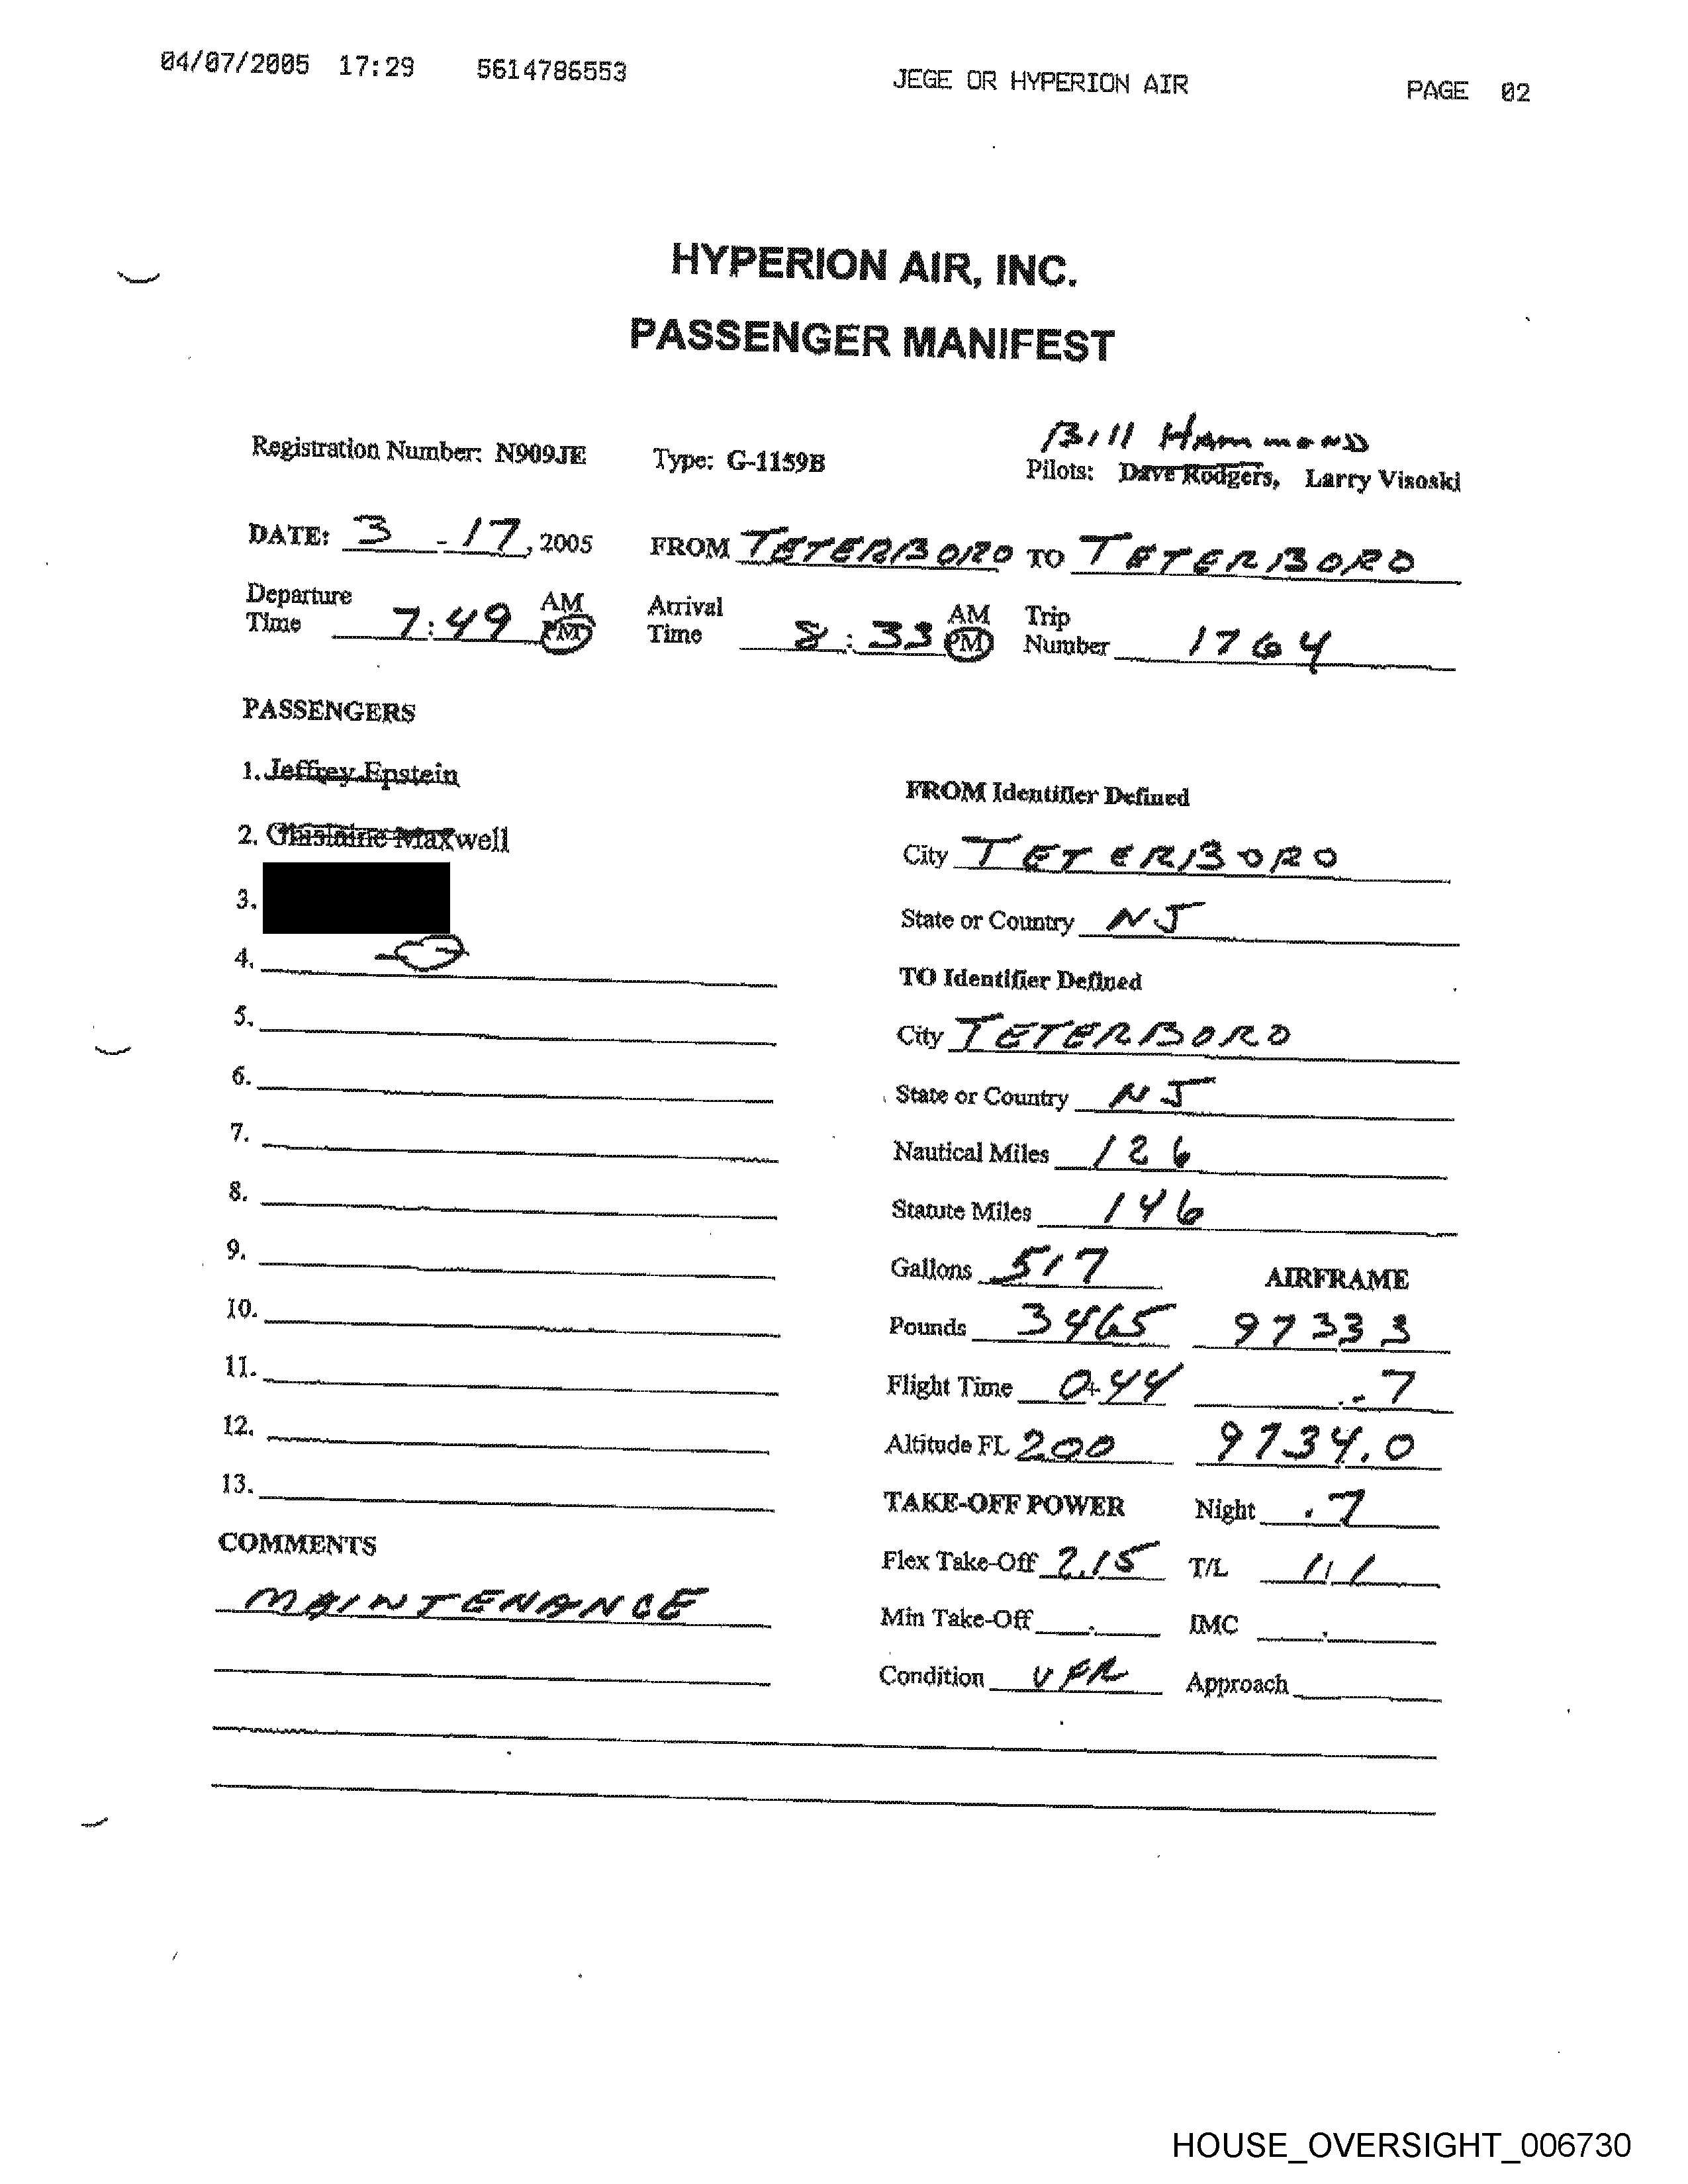 04/07/2005 17:29 5614786553 JEGE OR HYPERION AIR PAGE 02
HYPERION AIR, INC.
PASSENGER MANIFEST
Bill Hammond
Registration Number: N909JE Type: G-1159B Pilots: Dave Rodgers, Larry Visoski
DATE: 3 - 17, 2005 FROM TETERBORO TO TETERBORO
Departure Time 7:49 AM PM Arrival Time 8:33 AM PM Trip Number 1764
PASSENGERS
1. Jeffrey Epstein
FROM Identifier Defined
2. Ghislaine Maxwell
City TETERBORO
3.
State or Country NJ
4. -0-
TO Identifier Defined
5.
City TETERBORO
6.
State or Country NJ
7.
Nautical Miles 126
8.
Statute Miles 146
9.
Gallons 517 AIRFRAME
10.
Pounds 3465 9733 3
11.
Flight Time 0+44 .7
12.
Altitude FL 200 9734.0
13.
TAKE-OFF POWER Night .7
COMMENTS
Flex Take-Off 2.15 T/L 1/1
MAINTENANCE
Min Take-Off . IMC .
Condition VFR Approach
HOUSE_OVERSIGHT_006730